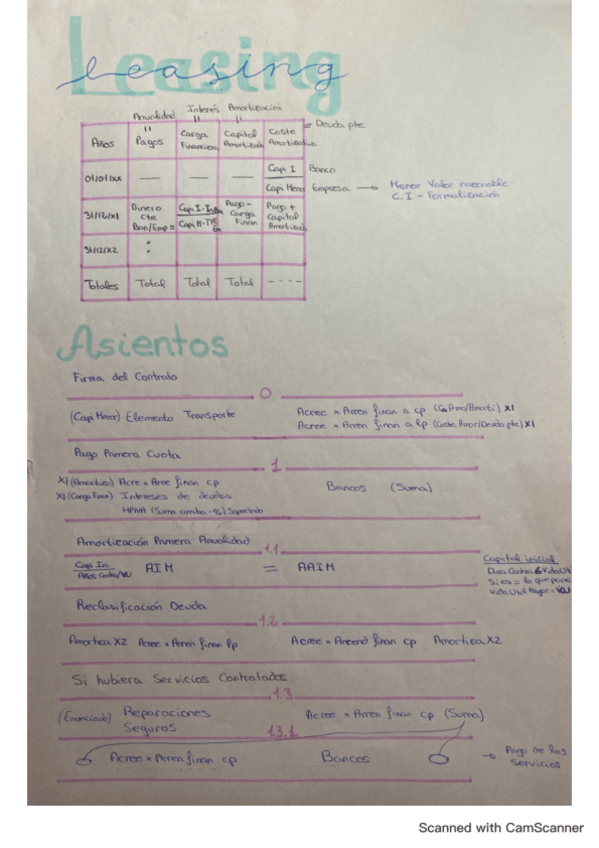 Leasing
Anualidad Interés Amortización
Años Pagos Carga Financiera Capital Amortizado Coste Amortizado = Deuda pte.
01/01/xx — — — Cap. I Banco
Capi Menor Empresa → Menor Valor razonable
C.I - Formalización
31/12/X1 Dinero Cte Ban/Emp = Pago - Carga Finan Pago + Capital Amortizado
31/12/X2 :
Totales Total Total Total ----
Asientos
Firma del Contrato
0
(Capi Menor) Elemento Transporte Acree x Arren finan a cp X1
Acree x Arren finan a lp (Coste Amor/Deuda pte) X1
Pago Primera Cuota
1
X1 (Amortiza) Acre x Arre finan cp Bancos (Suma)
X1 (Carga Finan) Intereses de deudas
(Suma arriba · %) Soportado
Amortización Primera Anualidad
1.1
Capi Ini AIM = AAIM
Capital inicial
Reclasificación Deuda
1.2
Amortiza X2 Acree x Arren finan lp Acree x Arrend finan cp Amortiza X2
Si hubiera Servicios Contratados
1.3
(Enunciado) Reparaciones Acree x Arren finan cp (Suma)
Seguros
1.3.1
Acree x Arren finan cp Bancos → Pago de los
Servicios
Scanned with CamScanner